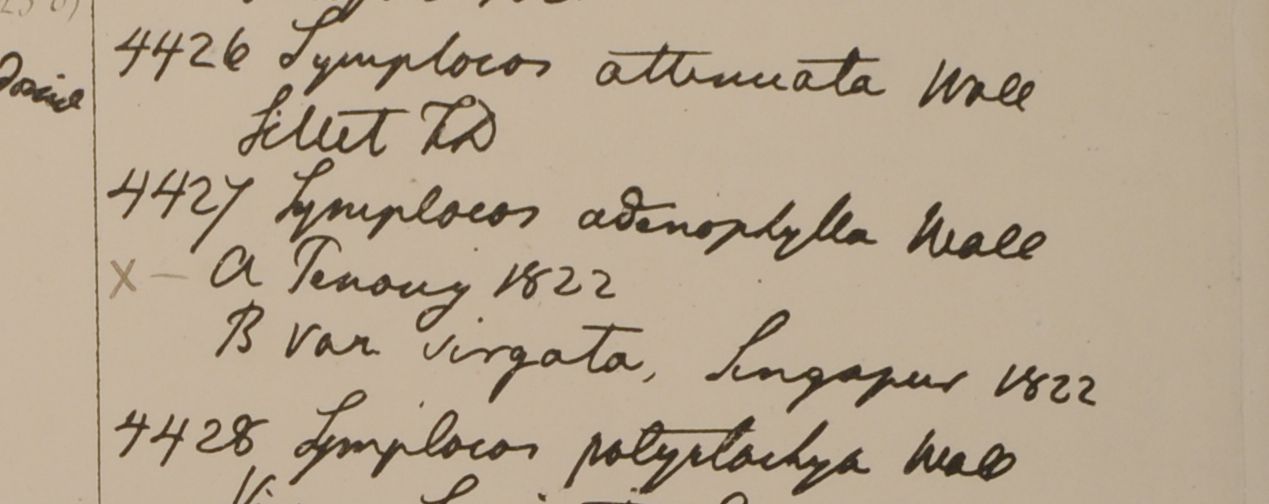 4426 Symplocos attenuata Wall
Sillet FD
4427 Symplocos adenophylla Wall
X — A Penang 1822
B Var virgata, Singapur 1822
4428 Symplocos polystachya Wall